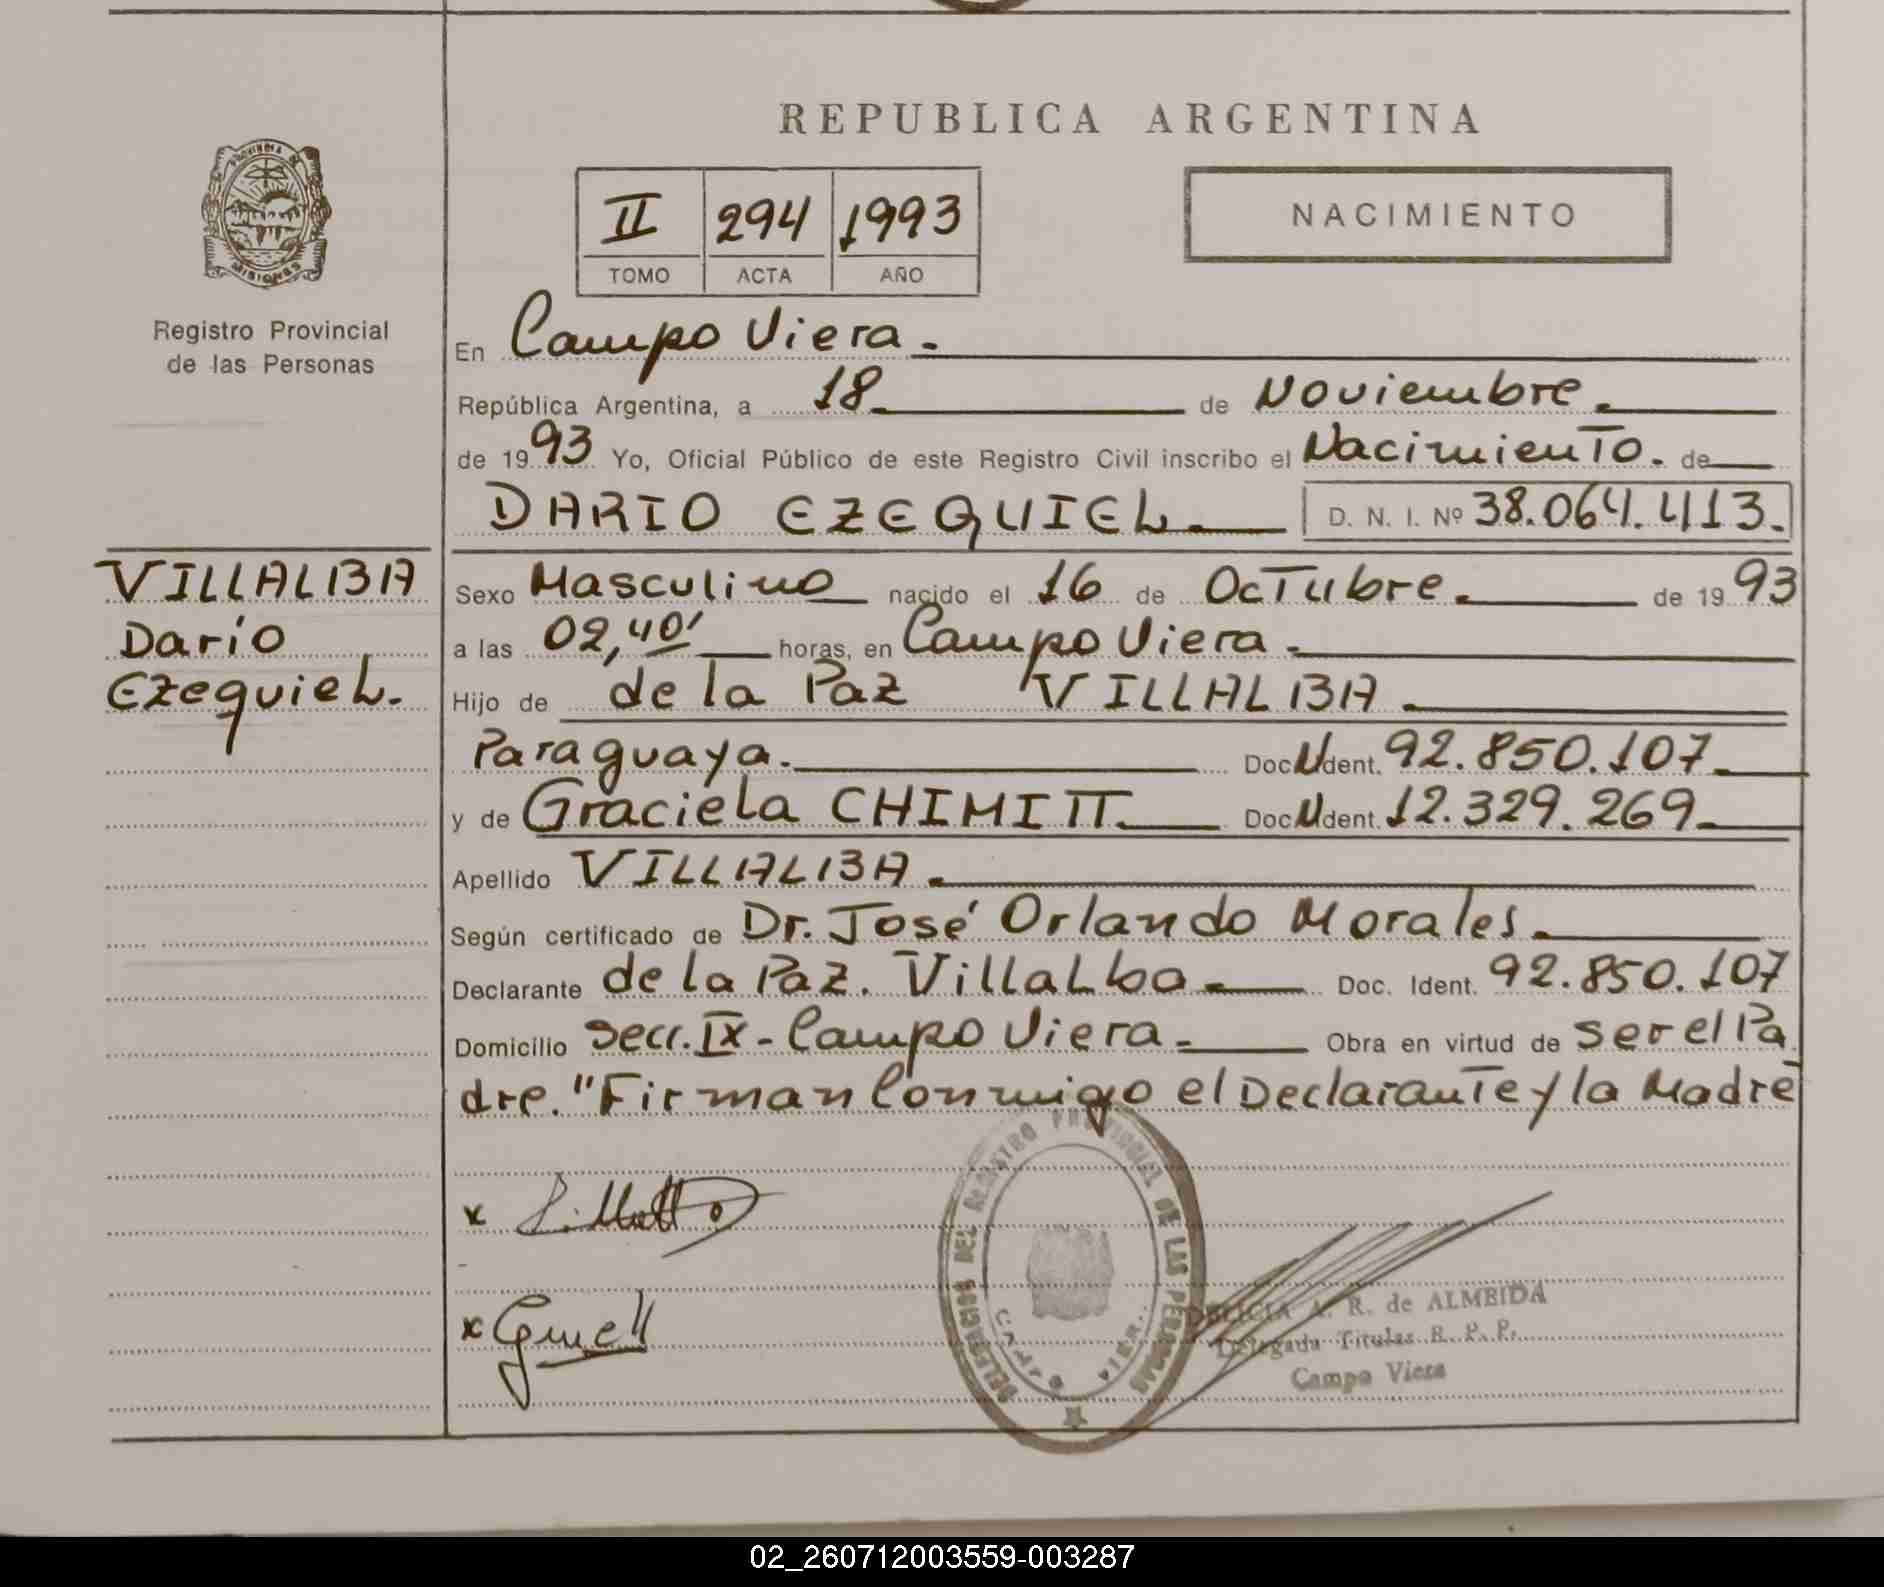 REPUBLICA ARGENTINA
PROVINCIA DE
MISIONES
Registro Provincial
de las Personas
II 294 1993
TOMO ACTA AÑO
NACIMIENTO
En Campo Viera.
República Argentina, a 18 de Noviembre.
de 1993 Yo, Oficial Público de este Registro Civil inscribo el Nacimiento. de
DARIO EZEQUIEL D. N. I. Nº 38.064.413.
VILLALBA
Darío
Ezequiel.
Sexo Masculino nacido el 16 de Octubre. de 1993
a las 02,40' horas, en Campo Viera.
Hijo de de la Paz VILLALBA.
Paraguaya. Doc. N Ident. 92.850.107
y de Graciela CHIMITT. Doc. N Ident. 12.329.269
Apellido VILLALBA.
Según certificado de Dr. José Orlando Morales.
Declarante de la Paz. Villalba Doc. Ident. 92.850.107
Domicilio Secc. IX - Campo Viera. Obra en virtud de ser el Pa
dre. "Firman Conmigo el Declarante y la Madre
x
x
DELEGACION DEL REGISTRO PROVINCIAL DE LAS PERSONAS
CAMPO VIERA
DELICIA A. R. de ALMEIDA
Delegada Titular R. P. P.
Campo Viera
02_260712003559-003287